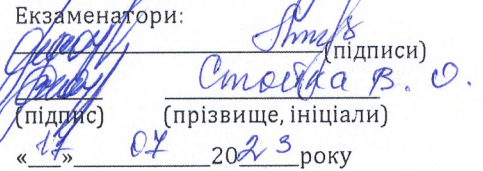 Екзаменатори:
(підписи)
Стойка В. О.
(підпис) (прізвище, ініціали)
«17» 07 2023 року